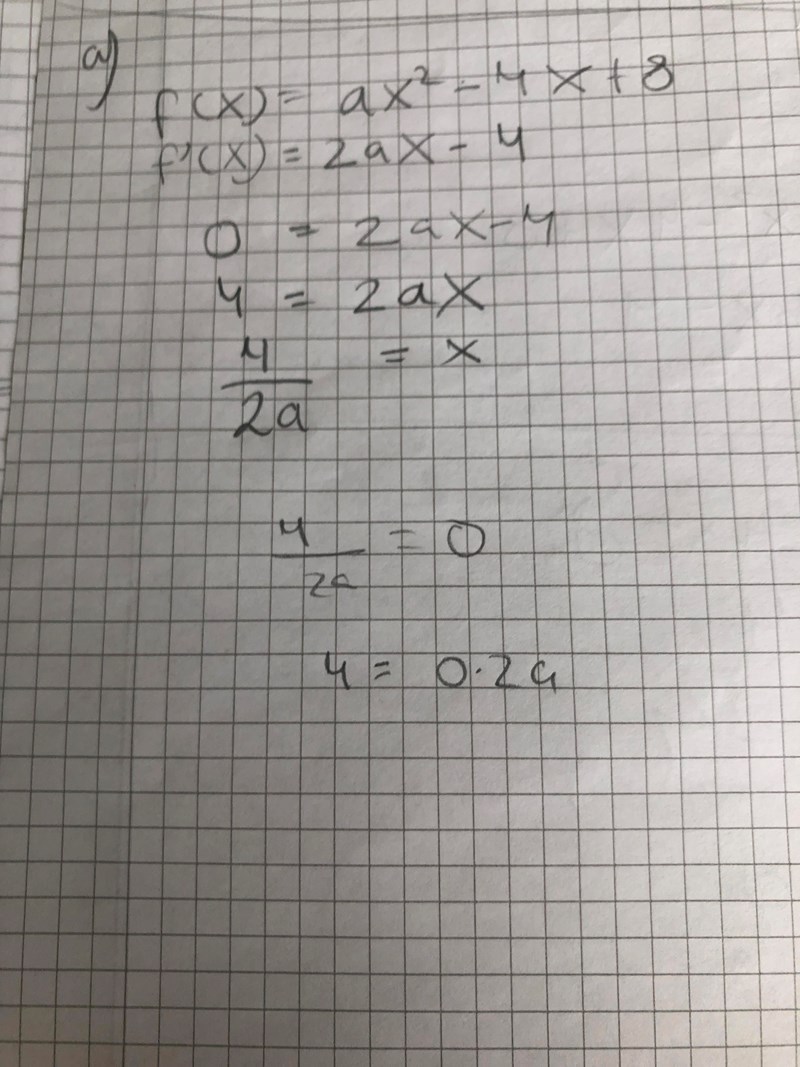 a)
f(x) = ax² - 4x + 8
f'(x) = 2ax - 4
0 = 2ax - 4
4 = 2ax
4/2a = x
4/2a = 0
4 = 0·2a